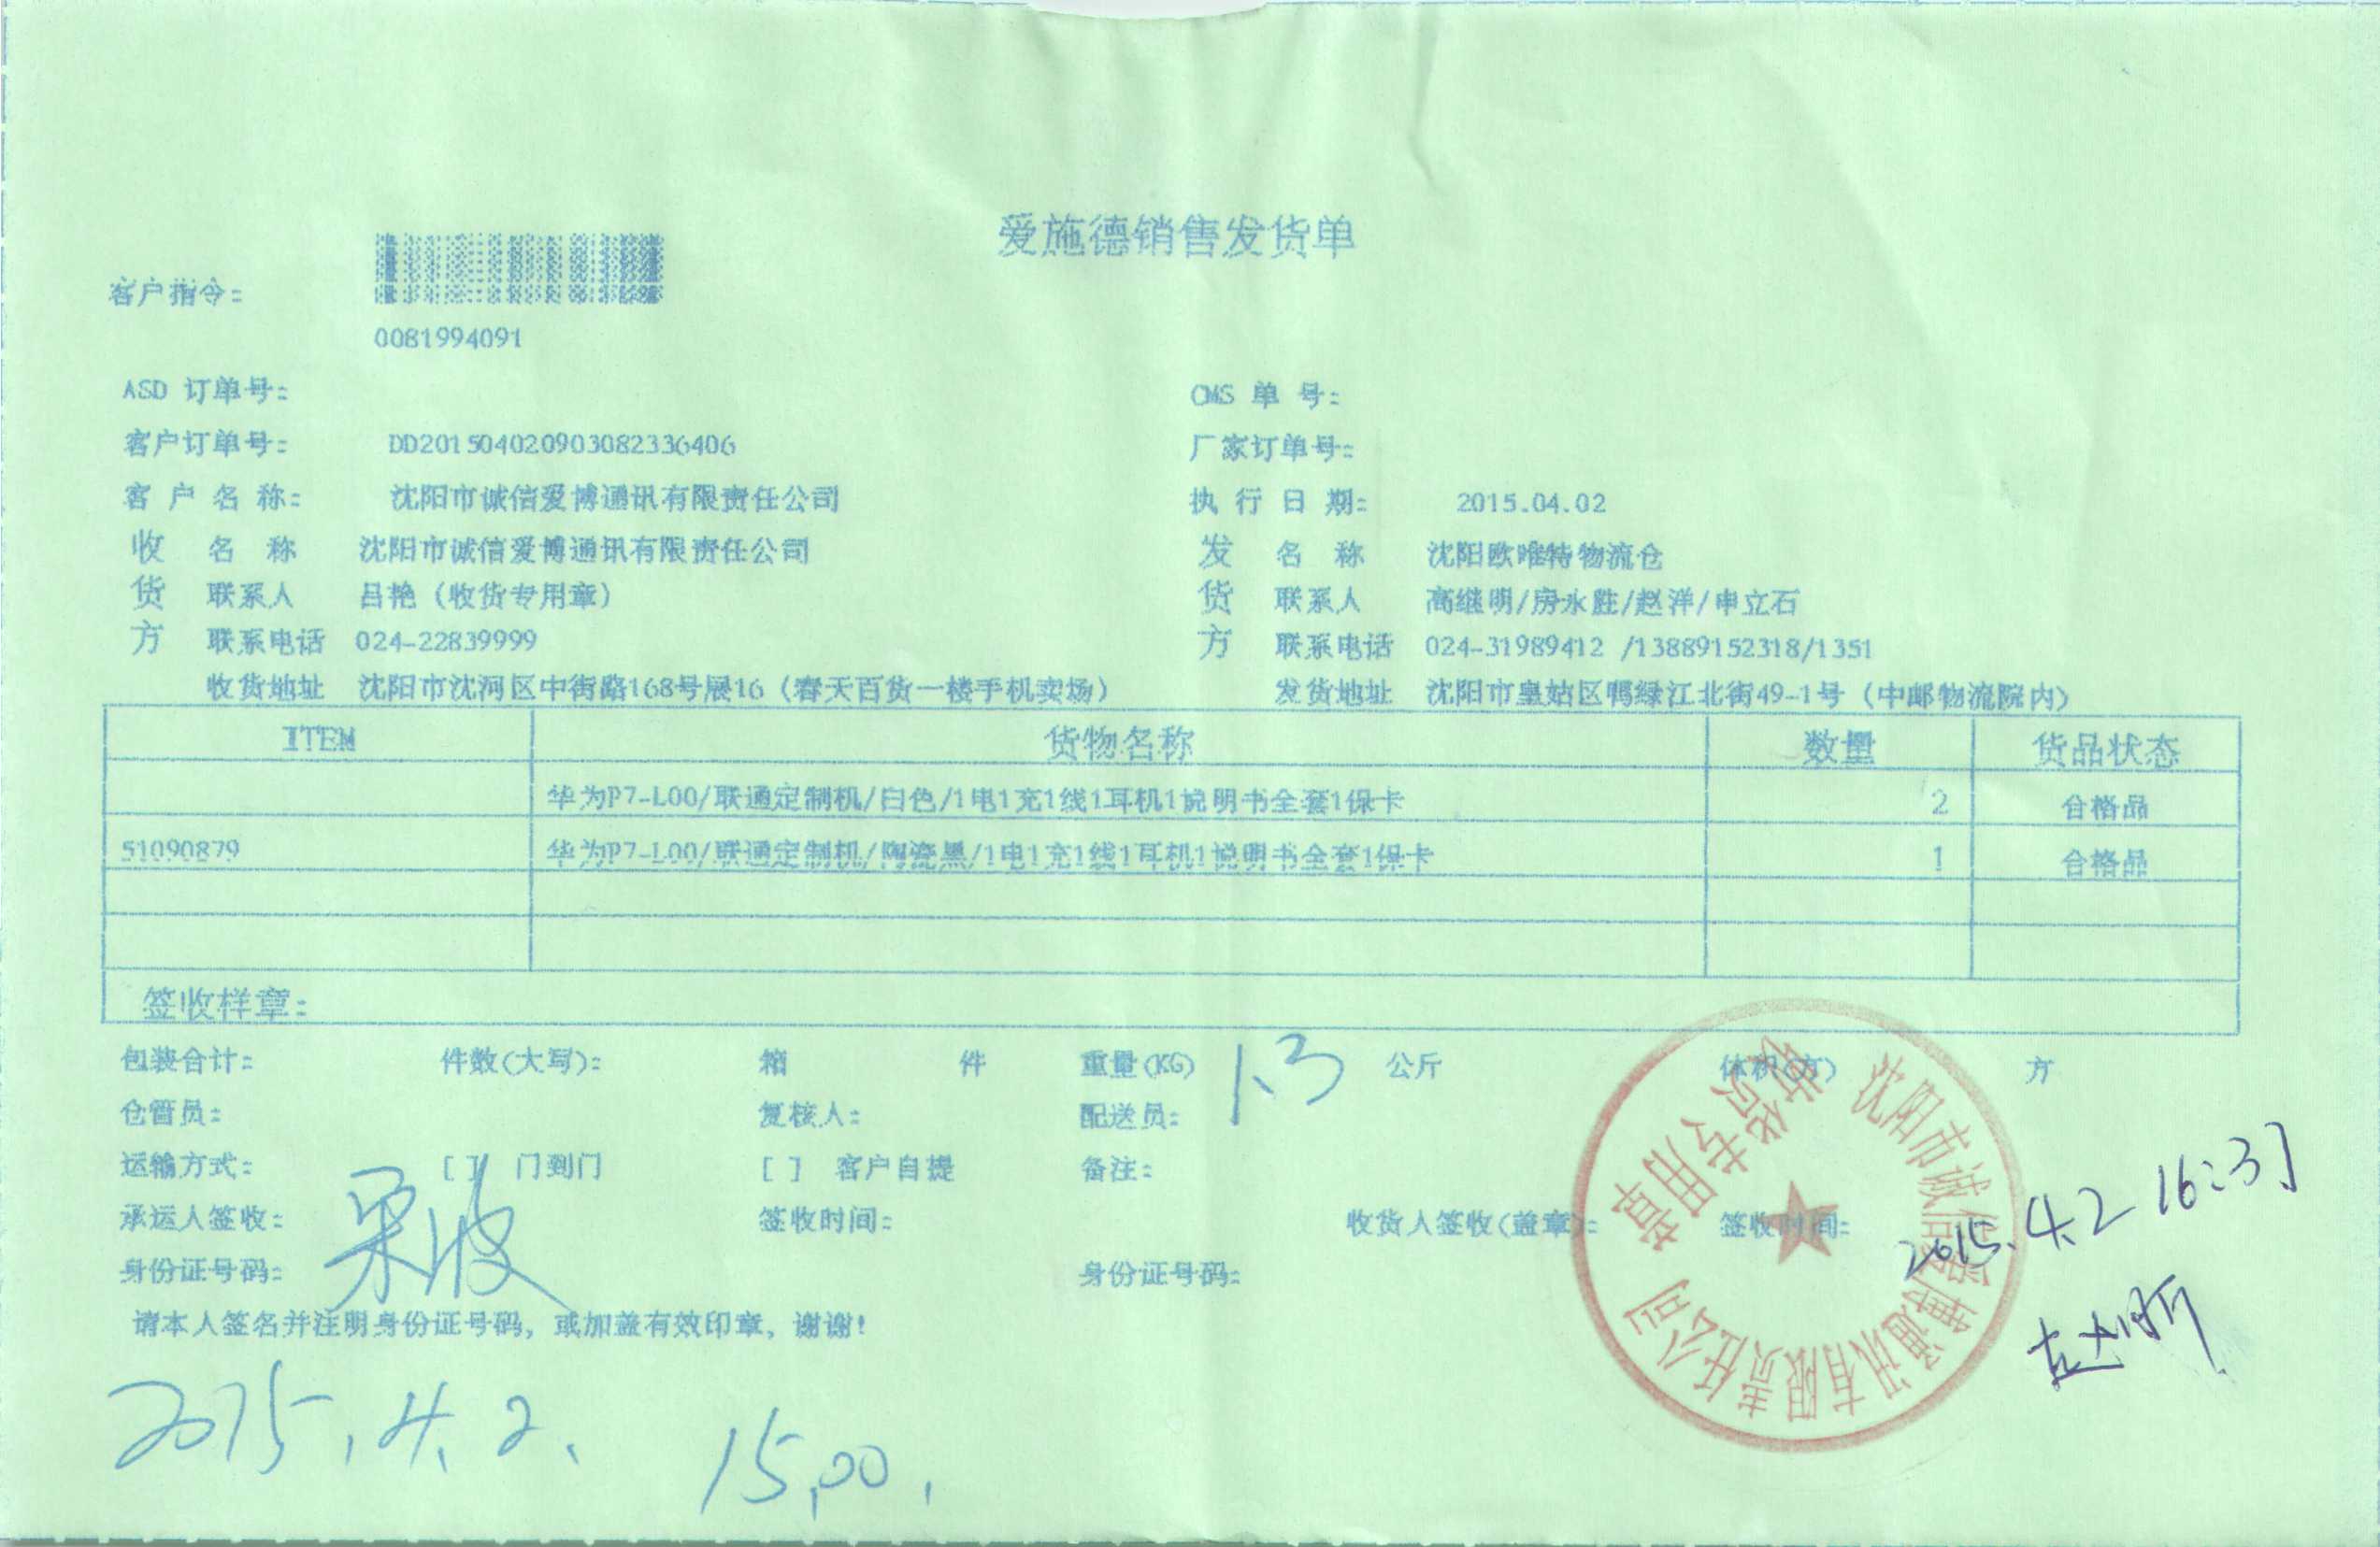 爱施德销售发货单
客户指令:
0081994091
ASD 订单号: CMS 单 号:
客户订单号: DD20150402090308233​6406 厂家订单号:
客 户 名 称: 沈阳市诚信爱博通讯有限责任公司 执 行 日 期: 2015.04.02
收 名 称 沈阳市诚信爱博通讯有限责任公司 发 名 称 沈阳欧唯特物流仓
货 联系人 吕艳（收货专用章） 货 联系人 高继明/房永胜/赵洋/申立石
方 联系电话 024-22839999 方 联系电话 024-31989412 /13889152318/1351
收货地址 沈阳市沈河区中街路168号展16（春天百货一楼手机卖场） 发货地址 沈阳市皇姑区鸭绿江北街49-1号（中邮物流院内）
ITEM 货物名称 数量 货品状态
华为P7-L00/联通定制机/白色/1电1充1线1耳机1说明书全套1保卡 2 合格品
51090879 华为P7-L00/联通定制机/陶瓷黑/1电1充1线1耳机1说明书全套1保卡 1 合格品
签收样章:
包装合计: 件数(大写): 箱 件 重量(KG) 1.3 公斤 体积(方) 方
仓管员: 复核人: 配送员:
运输方式: [ ] 门到门 [ ] 客户自提 备注:
承运人签收: 签收时间: 收货人签收(盖章): 签收时间: 2015.4.2 16:37
身份证号码: 身份证号码:
请本人签名并注明身份证号码，或加盖有效印章，谢谢!
2015.4.2. 15,00.
沈阳市诚信爱博通讯有限责任公司
收货专用章